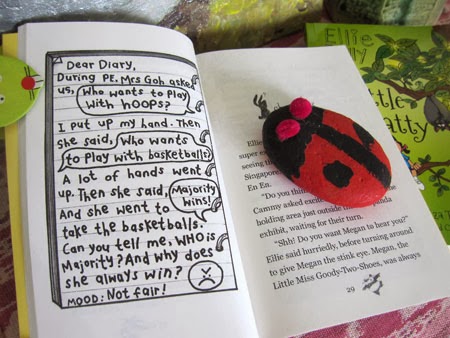 Dear Diary,
During PE, Mrs Goh asked
us, Who wants to play
with hoops?
I put up my hand. Then
she said, Who wants
to play with basketballs?
A lot of hands went
up. Then she said, Majority
wins!
And she went to
take the basketballs.
Can you tell me, WHO is
Majority? And why does
she always win?
MOOD: Not fair!
Ellie
super ex
seeing the
Singapore
En En.
"Do you thin
Cammy asked excite
holding area just outside the
Panda
exhibit, waiting for their turn.
"Shh! Do you want Megan to hear you?"
Ellie said hurriedly, before turning around
to give Megan the stink eye. Megan, the
Little Miss Goody-Two-Shoes, was always
29
Ellie